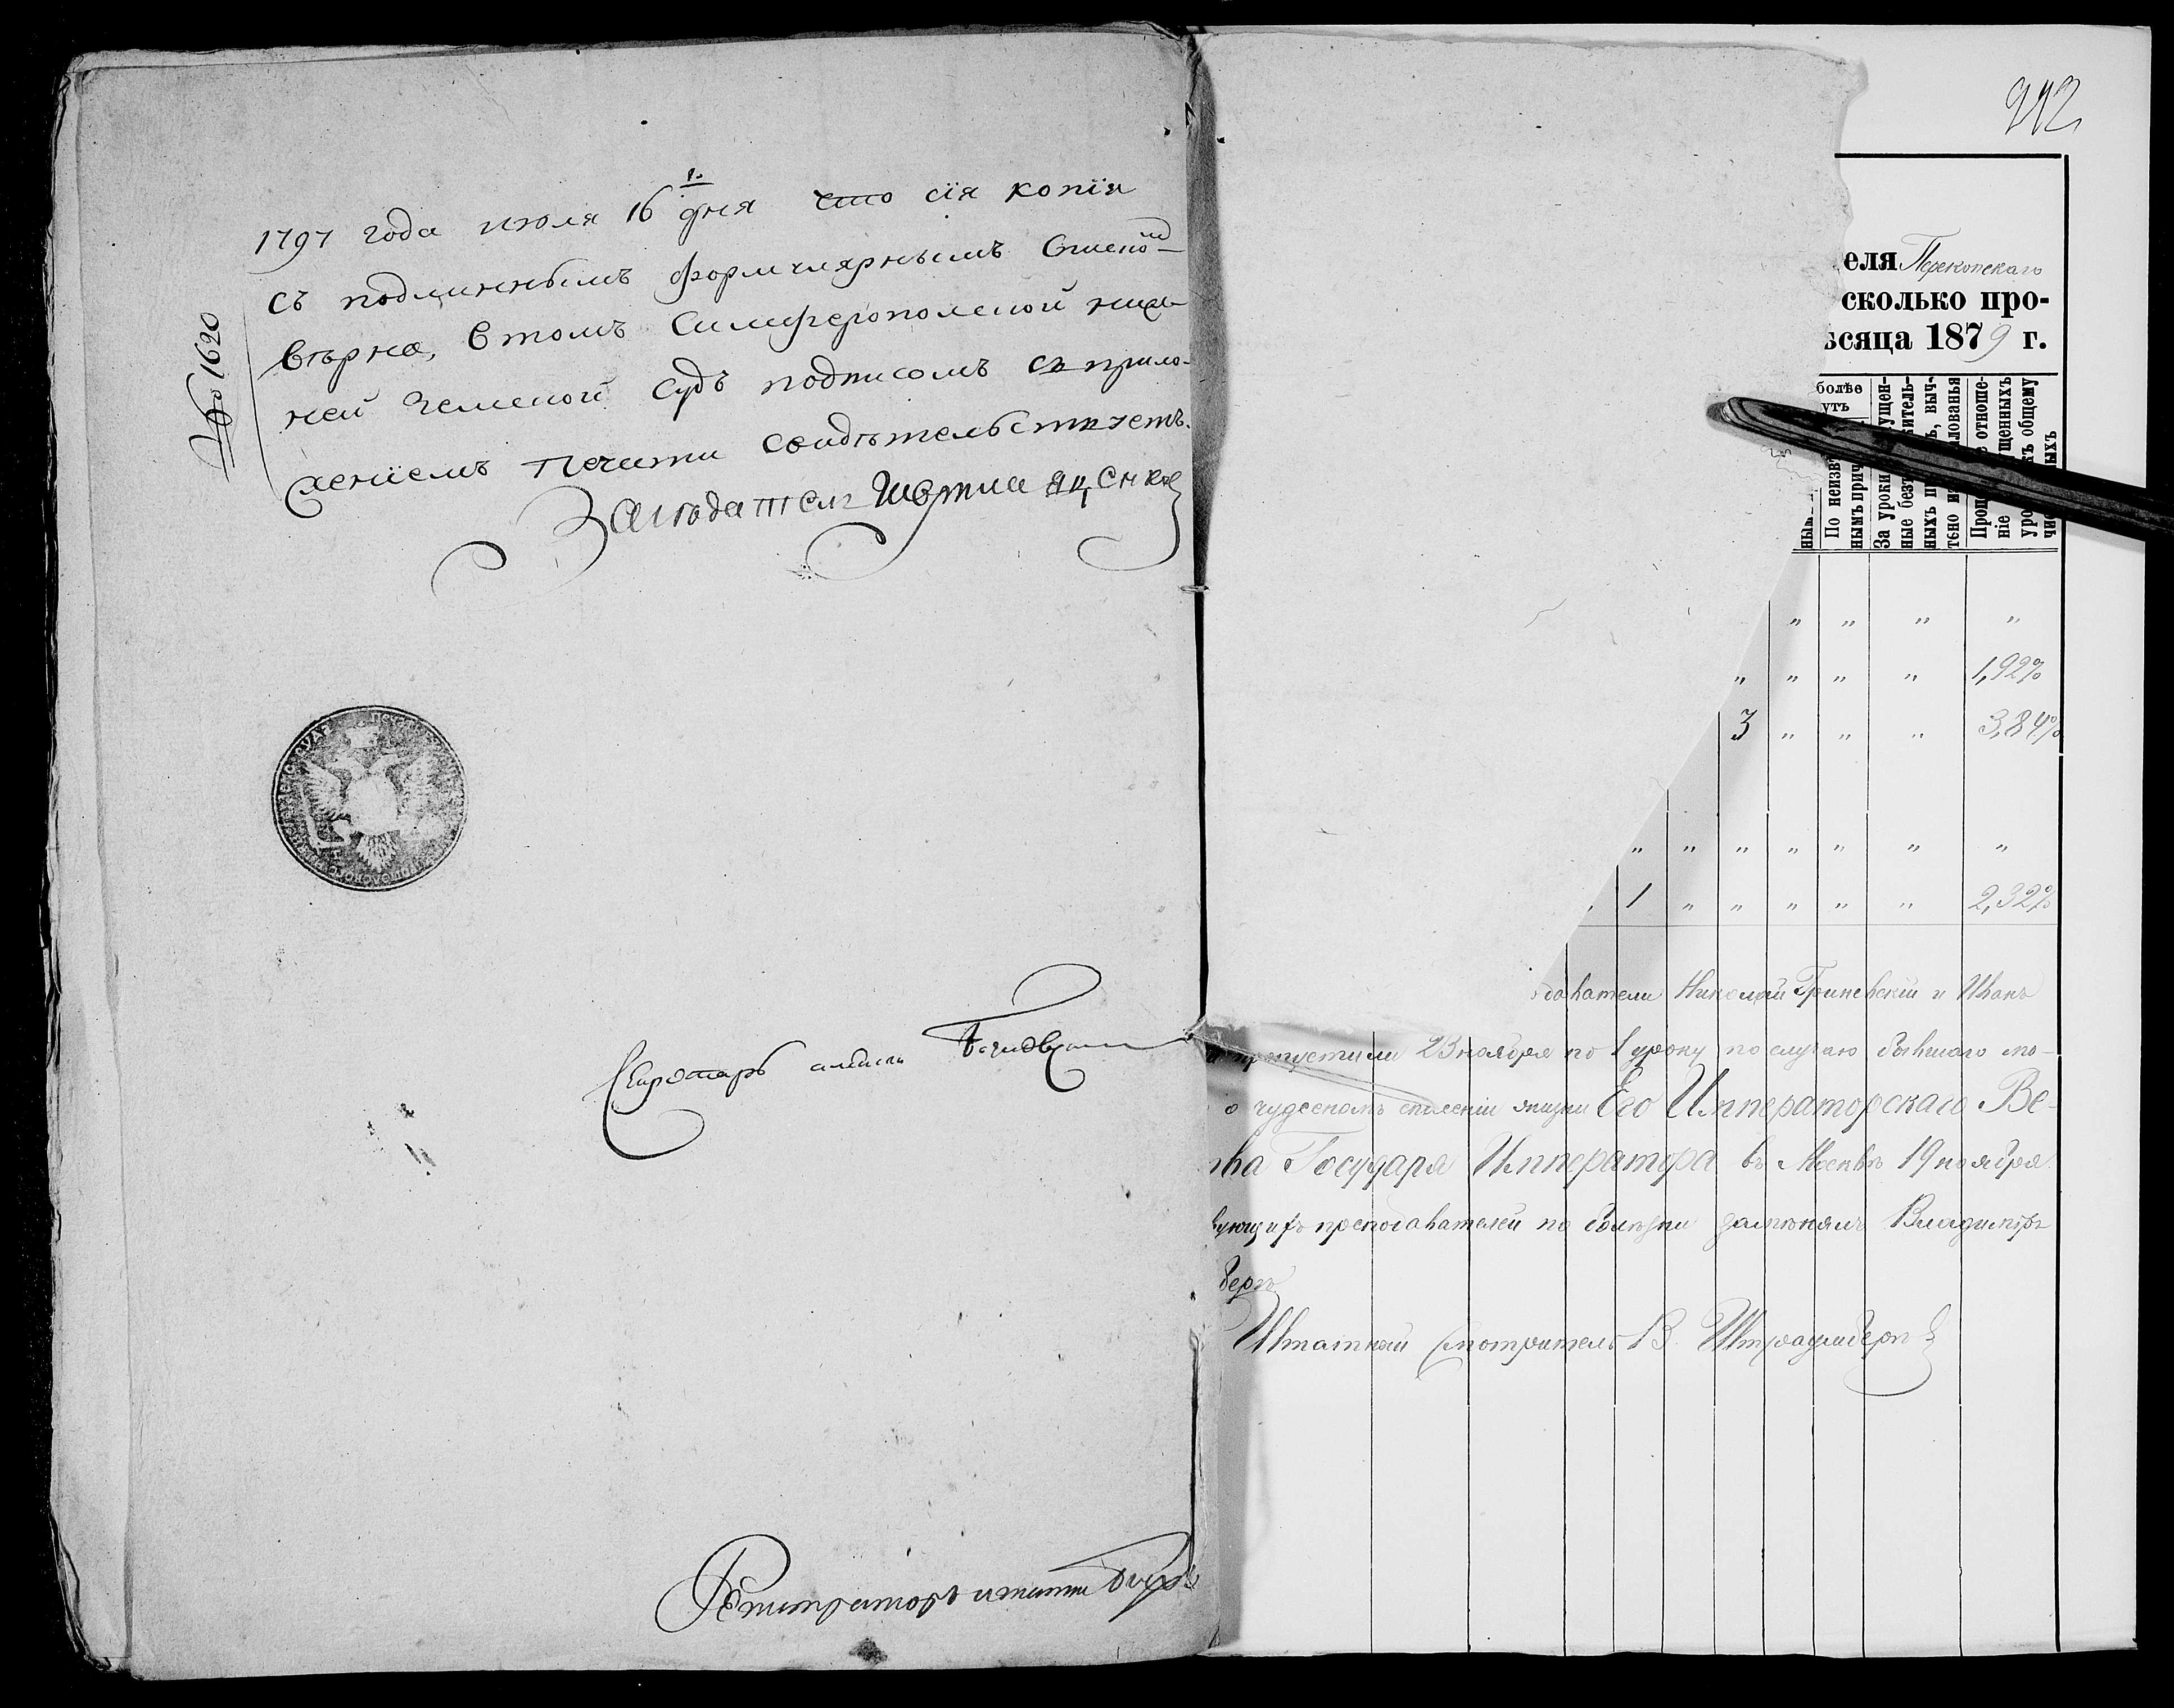 1797 года июля 16 дня что сїя копїя
съ подлиннымъ формулярнымъ Списко
вѣрна, втомъ Симферополской ниж-
ней Земской судъ подписомъ съ прило-
женїемъ печати свидѣтельствуетъ.
Засѣдатель
№ 1620
Секретарь
Регистраторъ
242
еля Перекопскаго
сколько про-
ѣсяца 1879 г.
болѣе
утъ
По неизвѣ
нымъ прич
За уроки ущен-
ные безъ витель-
ныхъ пр ъ, выч-
тено и алованья
Проц отношe-
нїе щенныхъ
уро къ общему
чис ыхъ
" " " "
" " " " 1,92%
3 " " " 3,84%
" " " " " " "
1 " " " " " 2,32%
даватели Николай Гриневскій и Иванъ
пропустили 23 ноября по 1 уроку по случаю бывшаго мо-
о чудесномъ спасеніи жизни Его Императорскаго Ве-
тва Государя Императора въ Москвѣ 19 ноября.
вующихъ преподавателей по болѣзни замѣнялъ Владиміръ
бергъ
Штатный смотритель В. Штраумбергъ